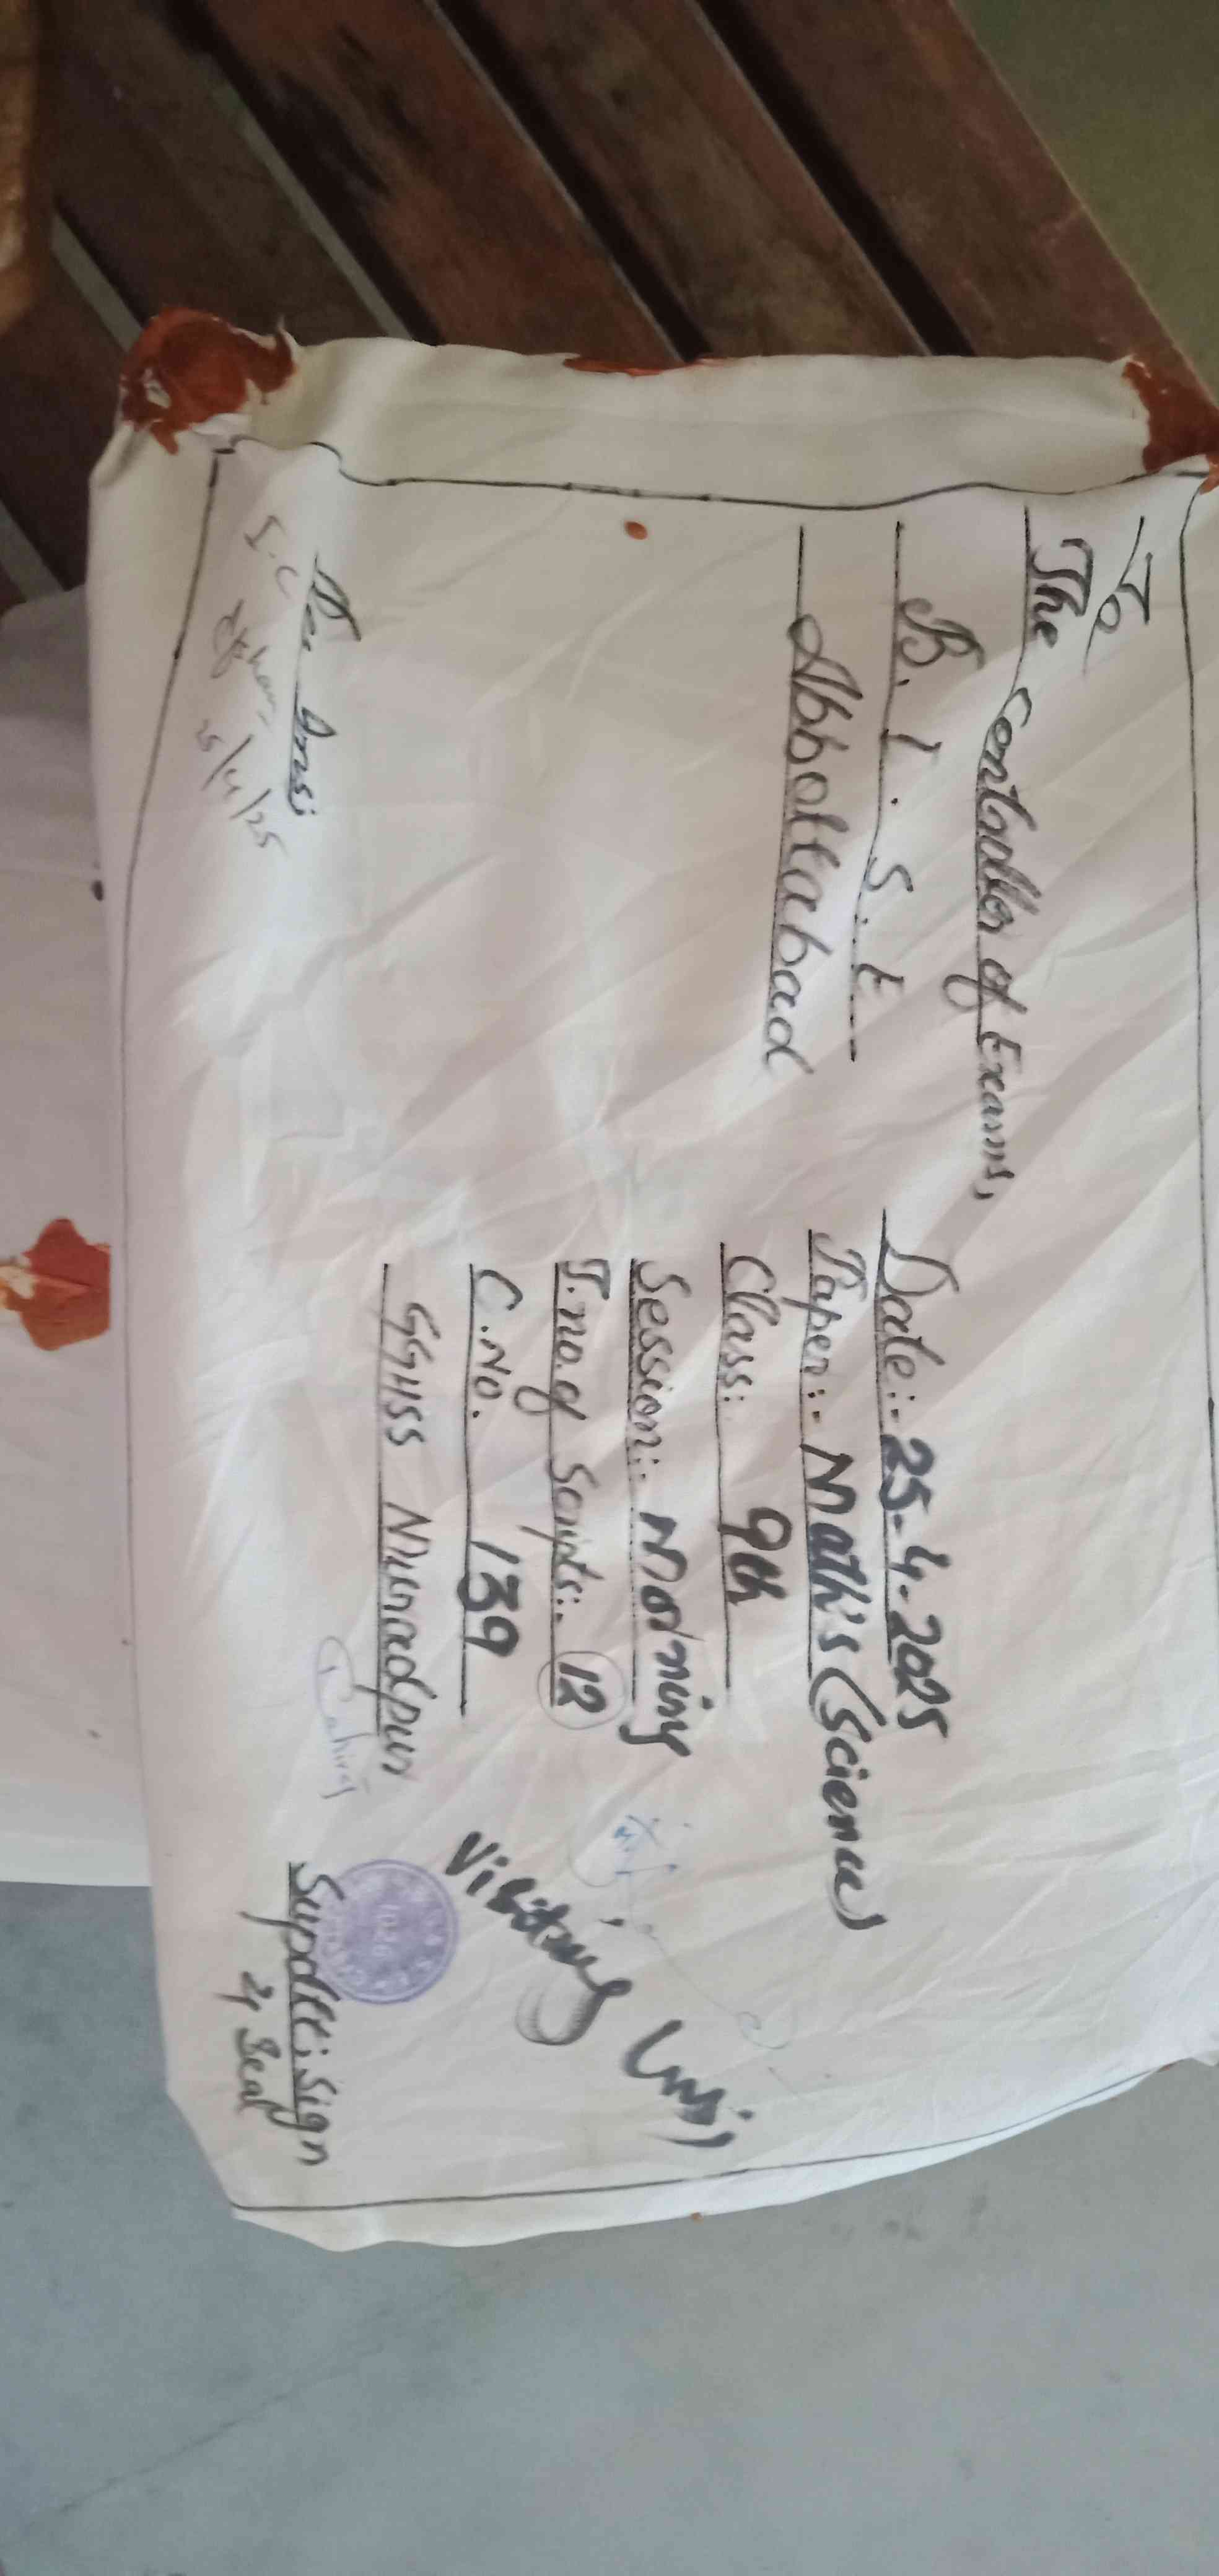 To
The Controller of Exams,
B.I.S.E
Abbottabad
Date:- 25-4-2025
Paper:- Math's (Science)
Class: 9th
Session:- Morning
T.no.of Scripts:- 12
C.No. 139
GGHSS Muradpur
Visiting
I.C
25/4/25
Supdtt: Sign
& Seal